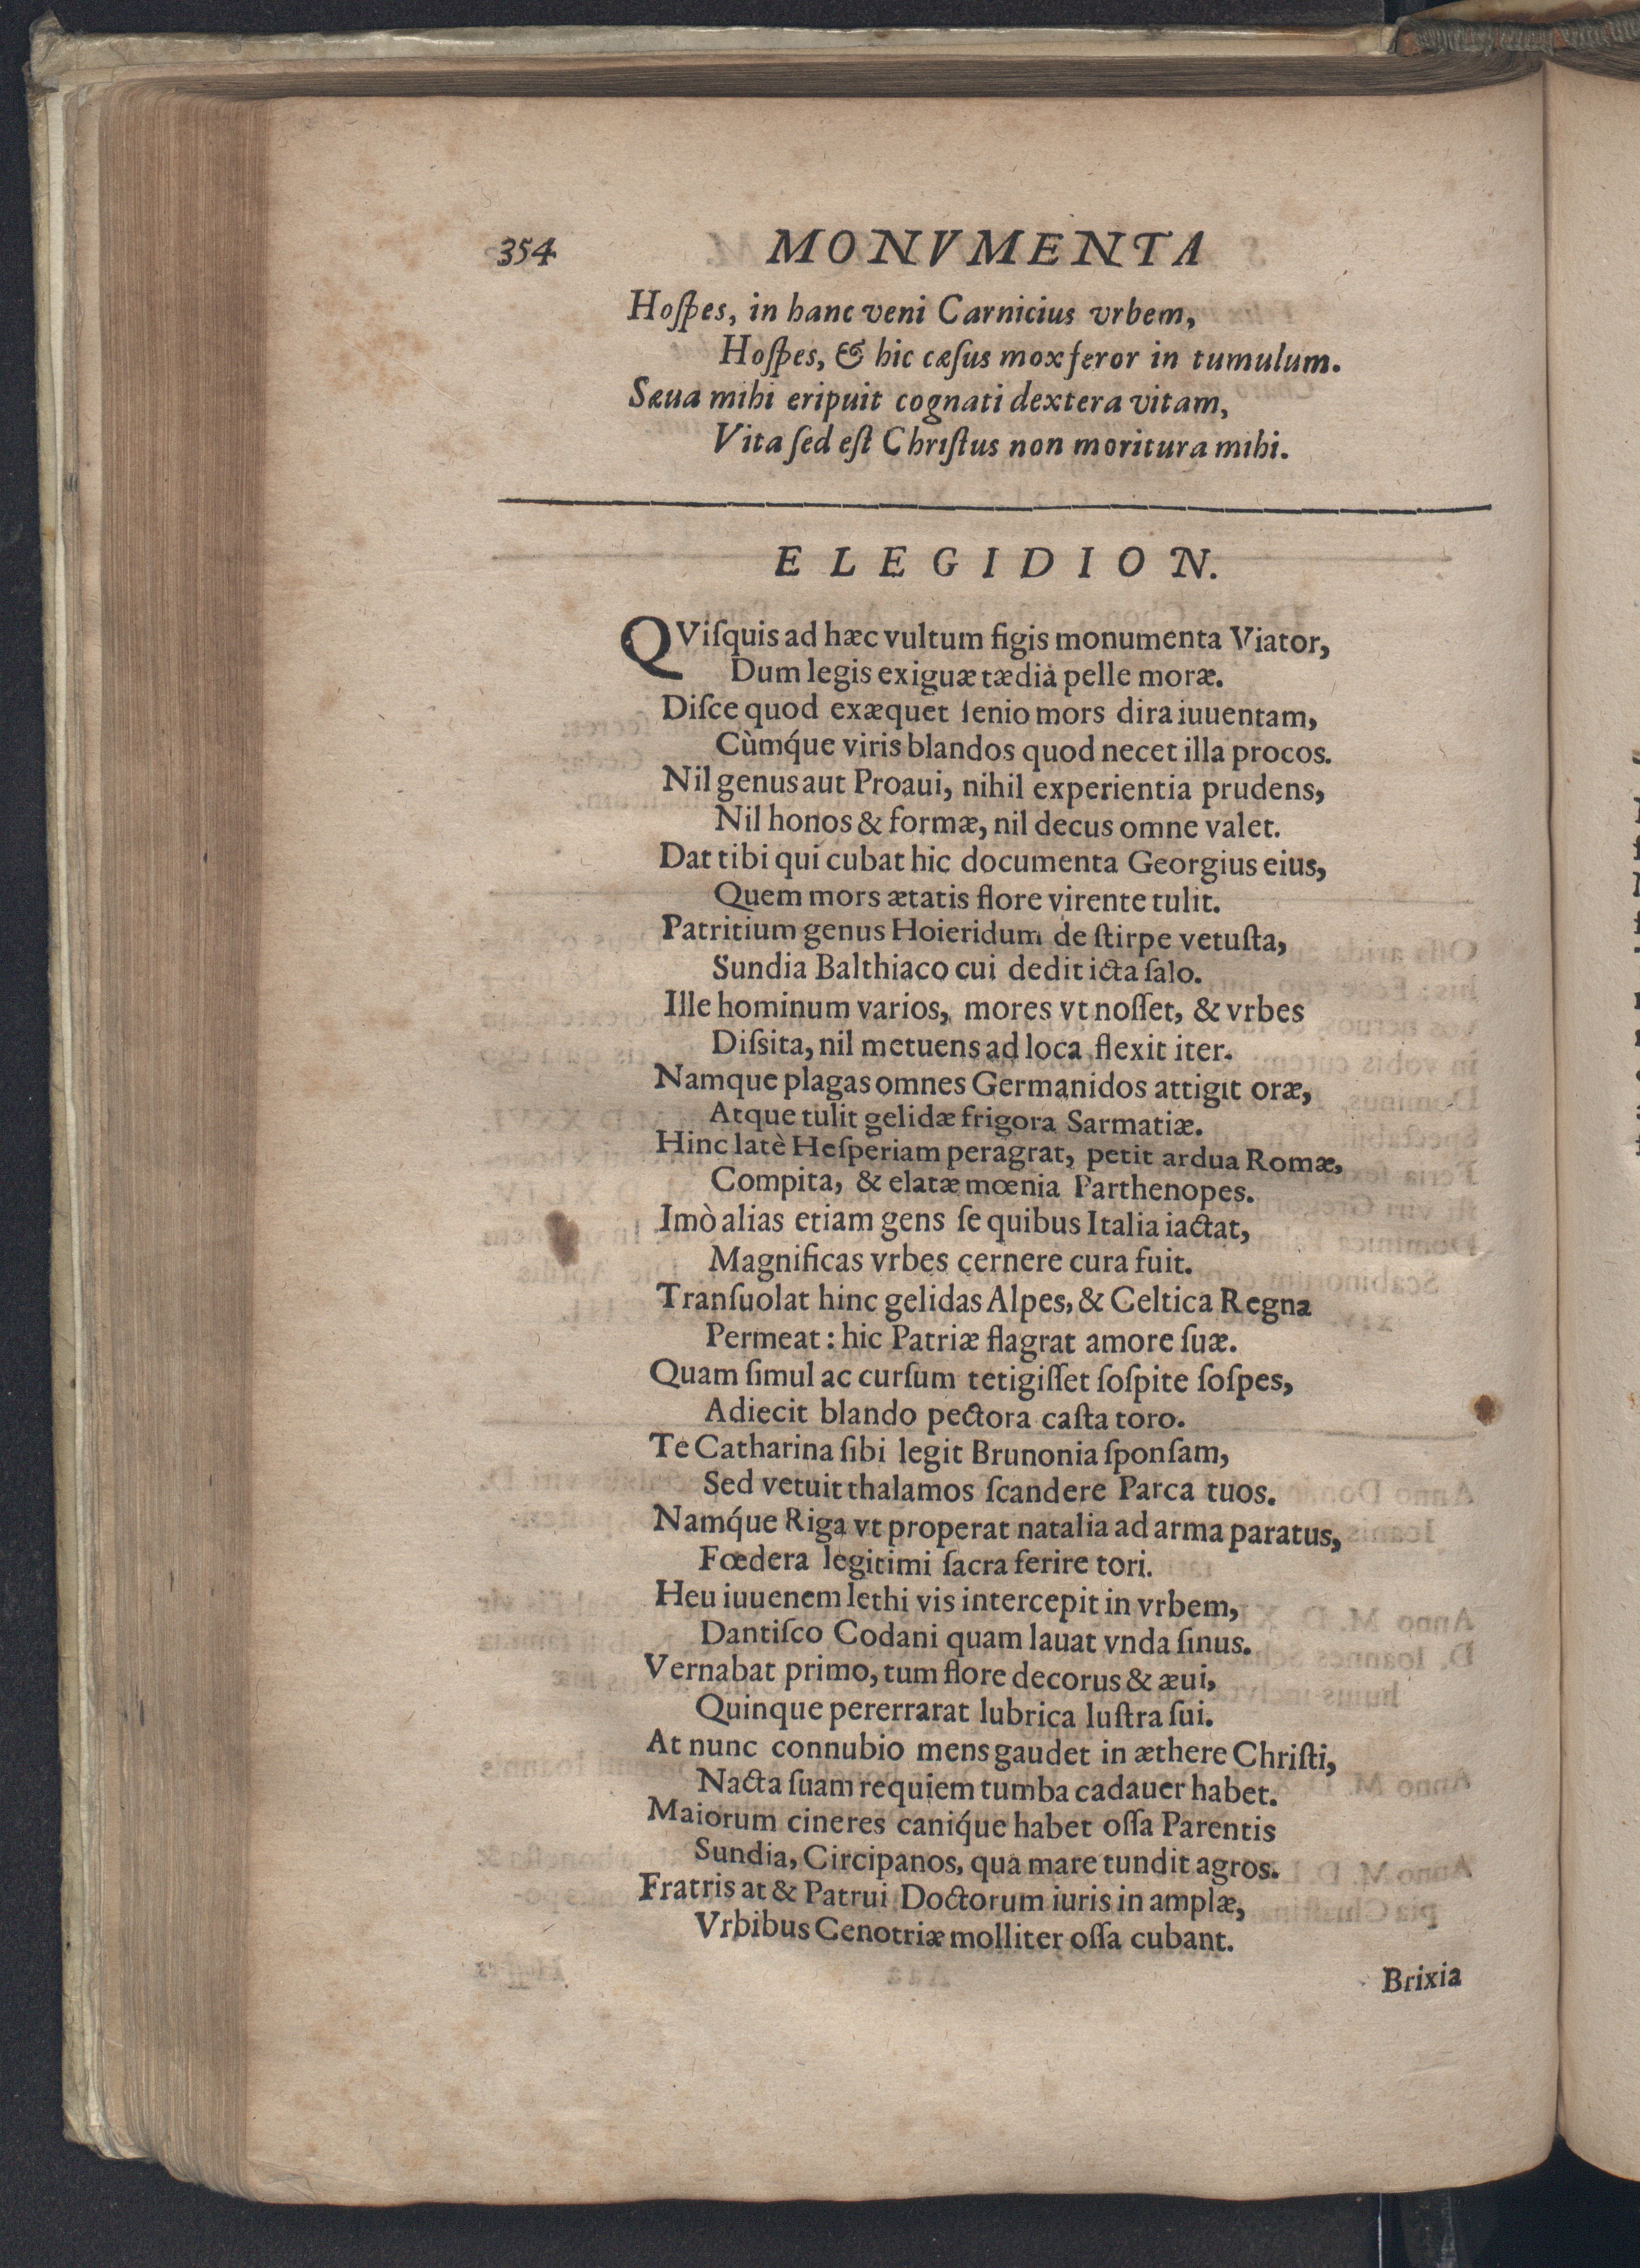 354 MONVMENTA
Hoſpes, in hanc veni Carnicius vrbem,
Hoſpes, & hic cæſus mox feror in tumulum.
Sæua mihi eripuit cognati dextera vitam,
Vita ſed eſt Chriſtus non moritura mihi.
ELEGIDION.
QViſquis ad hæc vultum figis monumenta Viator,
Dum legis exiguæ tædia pelle moræ.
Diſce quod exæquet ſenio mors dira iuuentam,
Cùmq́ue viris blandos quod necet illa procos.
Nil genus aut Proaui, nihil experientia prudens,
Nil honos & formæ, nil decus omne valet.
Dat tibi qui cubat hic documenta Georgius eius,
Quem mors ætatis flore virente tulit.
Patritium genus Hoieridum de ſtirpe vetuſta,
Sundia Balthiaco cui dedit icta ſalo.
Ille hominum varios, mores vt noſſet, & vrbes
Diſsita, nil metuens ad loca flexit iter.
Namque plagas omnes Germanidos attigit oræ,
Atque tulit gelidæ frigora Sarmatiæ.
Hinc latè Heſperiam peragrat, petit ardua Romæ,
Compita, & elatæ mœnia Parthenopes.
Imò alias etiam gens ſe quibus Italia iactat,
Magnificas vrbes cernere cura fuit.
Tranſuolat hinc gelidas Alpes, & Celtica Regna
Permeat: hic Patriæ flagrat amore ſuæ.
Quam ſimul ac curſum tetigiſſet ſoſpite ſoſpes,
Adiecit blando pectora caſta toro.
Te Catharina ſibi legit Brunonia ſponſam,
Sed vetuit thalamos ſcandere Parca tuos.
Namq́ue Riga vt properat natalia ad arma paratus,
Fœdera legitimi ſacra ferire tori.
Heu iuuenem lethi vis intercepit in vrbem,
Dantiſco Codani quam lauat vnda ſinus.
Vernabat primo, tum flore decorus & æui,
Quinque pererrarat lubrica luſtra ſui.
At nunc connubio mens gaudet in æthere Chriſti,
Nacta ſuam requiem tumba cadauer habet.
Maiorum cineres caniq́ue habet oſſa Parentis
Sundia, Circipanos, qua mare tundit agros.
Fratris at & Patrui Doctorum iuris in amplæ,
Vrbibus Cenotriæ molliter oſſa cubant.
Brixia